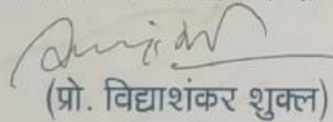 (प्रो. विद्याशंकर शुक्ल)